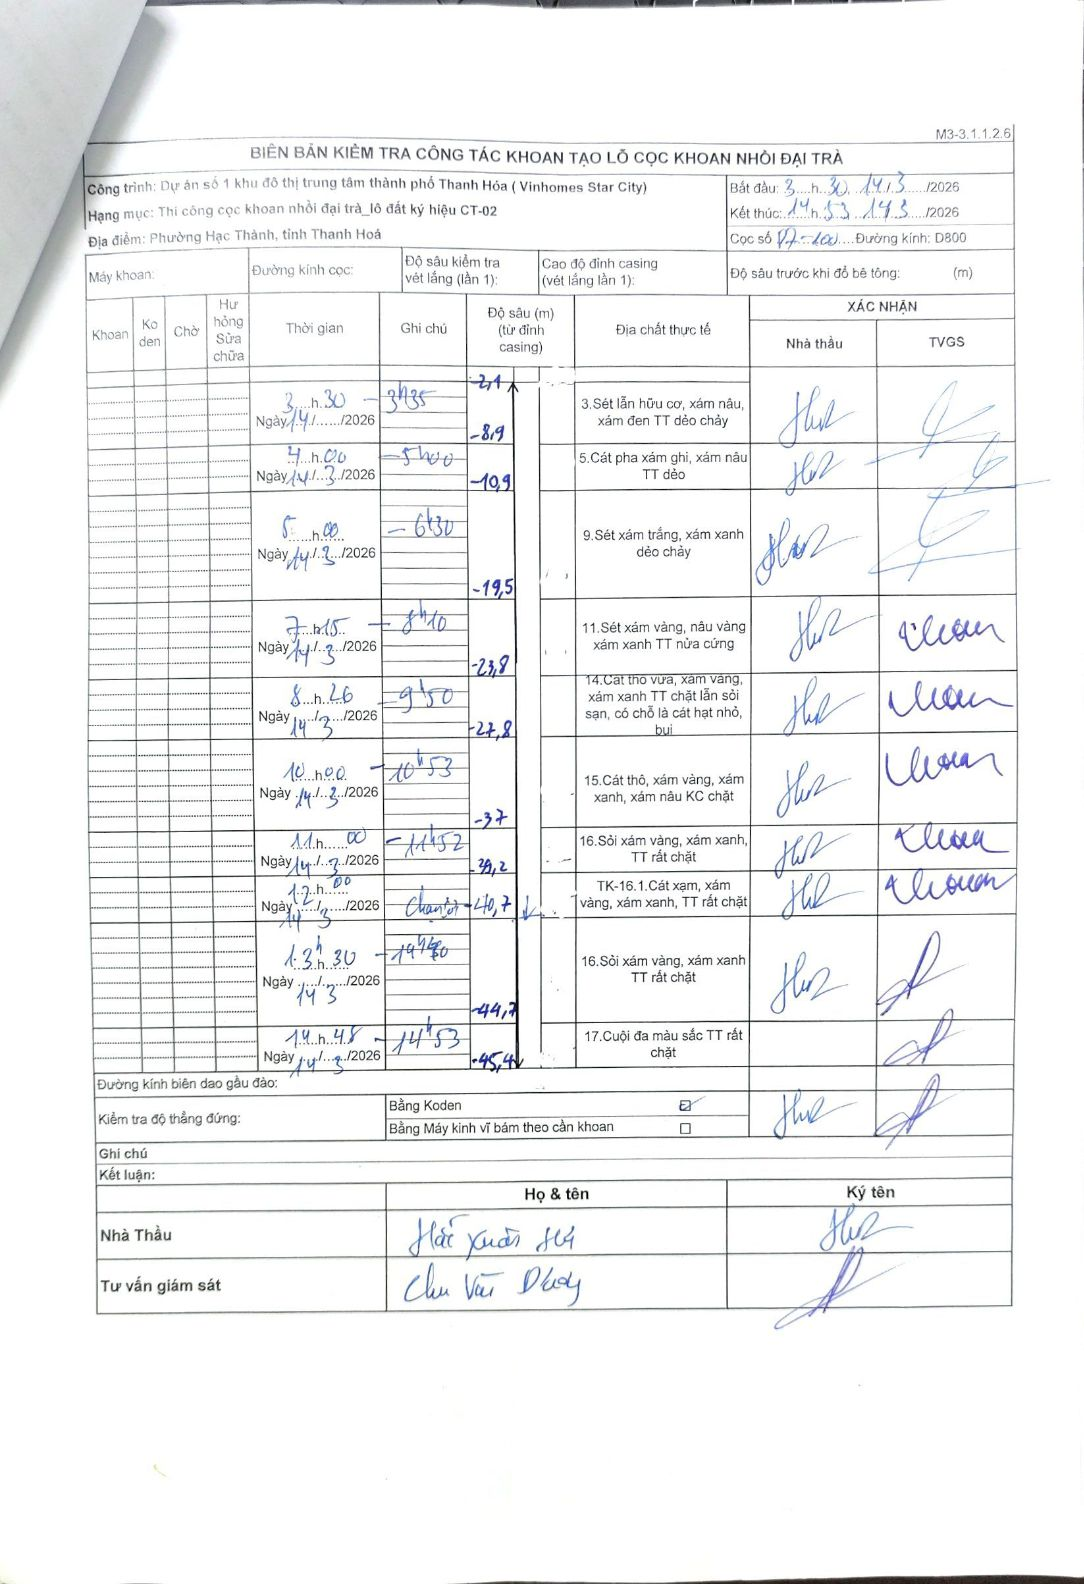 M3-3.1.1.2.6
BIÊN BẢN KIỂM TRA CÔNG TÁC KHOAN TẠO LỖ CỌC KHOAN NHỒI ĐẠI TRÀ
Công trình: Dự án số 1 khu đô thị trung tâm thành phố Thanh Hóa ( Vinhomes Star City)
Hạng mục: Thi công cọc khoan nhồi đại trà_lô đất ký hiệu CT-02
Địa điểm: Phường Hạc Thành, tỉnh Thanh Hoá
Bắt đầu: 3 h 30 14/3 /2026
Kết thúc: 14 h 53 14/3 /2026
Cọc số P7-100 Đường kính: D800
Máy khoan:
Đường kính cọc:
Độ sâu kiểm tra vét lắng (lần 1):
Cao độ đỉnh casing (vét lắng lần 1):
Độ sâu trước khi đổ bê tông: (m)
Khoan Ko den Chờ Hư hỏng Sửa chữa Thời gian Ghi chú Độ sâu (m) (từ đỉnh casing) Địa chất thực tế XÁC NHẬN
Nhà thầu TVGS
-2,1
3 h 30 - 3h35
Ngày 14/....../2026
-8,9
3.Sét lẫn hữu cơ, xám nâu,
xám đen TT dẻo chảy
4 h 00 - 5h00
Ngày 14/3/2026
-10,9
5.Cát pha xám ghi, xám nâu
TT dẻo
5 h 00 - 6h30
Ngày 14/3/2026
-19,5
9.Sét xám trắng, xám xanh
dẻo chảy
7 h 15 - 8h10
Ngày 14/3/2026
-23,8
11.Sét xám vàng, nâu vàng
xám xanh TT nửa cứng
8 h 26 - 9h50
Ngày 14/3/2026
-27,8
14.Cát thô vừa, xám vàng,
xám xanh TT chặt lẫn sỏi
sạn, có chỗ là cát hạt nhỏ,
bụi
10 h 00 - 10h53
Ngày 14/3/2026
-37
15.Cát thô, xám vàng, xám
xanh, xám nâu KC chặt
11 h 00 - 11h52
Ngày 14/3/2026
-39,2
16.Sỏi xám vàng, xám xanh,
TT rất chặt
12 h 00
Ngày 14/3/2026
-40,7
TK-16.1.Cát xạm, xám
vàng, xám xanh, TT rất chặt
13 h 30
Ngày 14/3/2026
-44,7
16.Sỏi xám vàng, xám xanh
TT rất chặt
14 h 48 - 14h53
Ngày 14/3/2026
-45,4
17.Cuội đa màu sắc TT rất
chặt
Đường kính biên dao gầu đào:
Kiểm tra độ thẳng đứng:
Bằng Koden ☑
Bằng Máy kinh vĩ bám theo cần khoan ☐
Ghi chú
Kết luận:
Họ & tên Ký tên
Nhà Thầu Xuân
Tư vấn giám sát Chu Văn